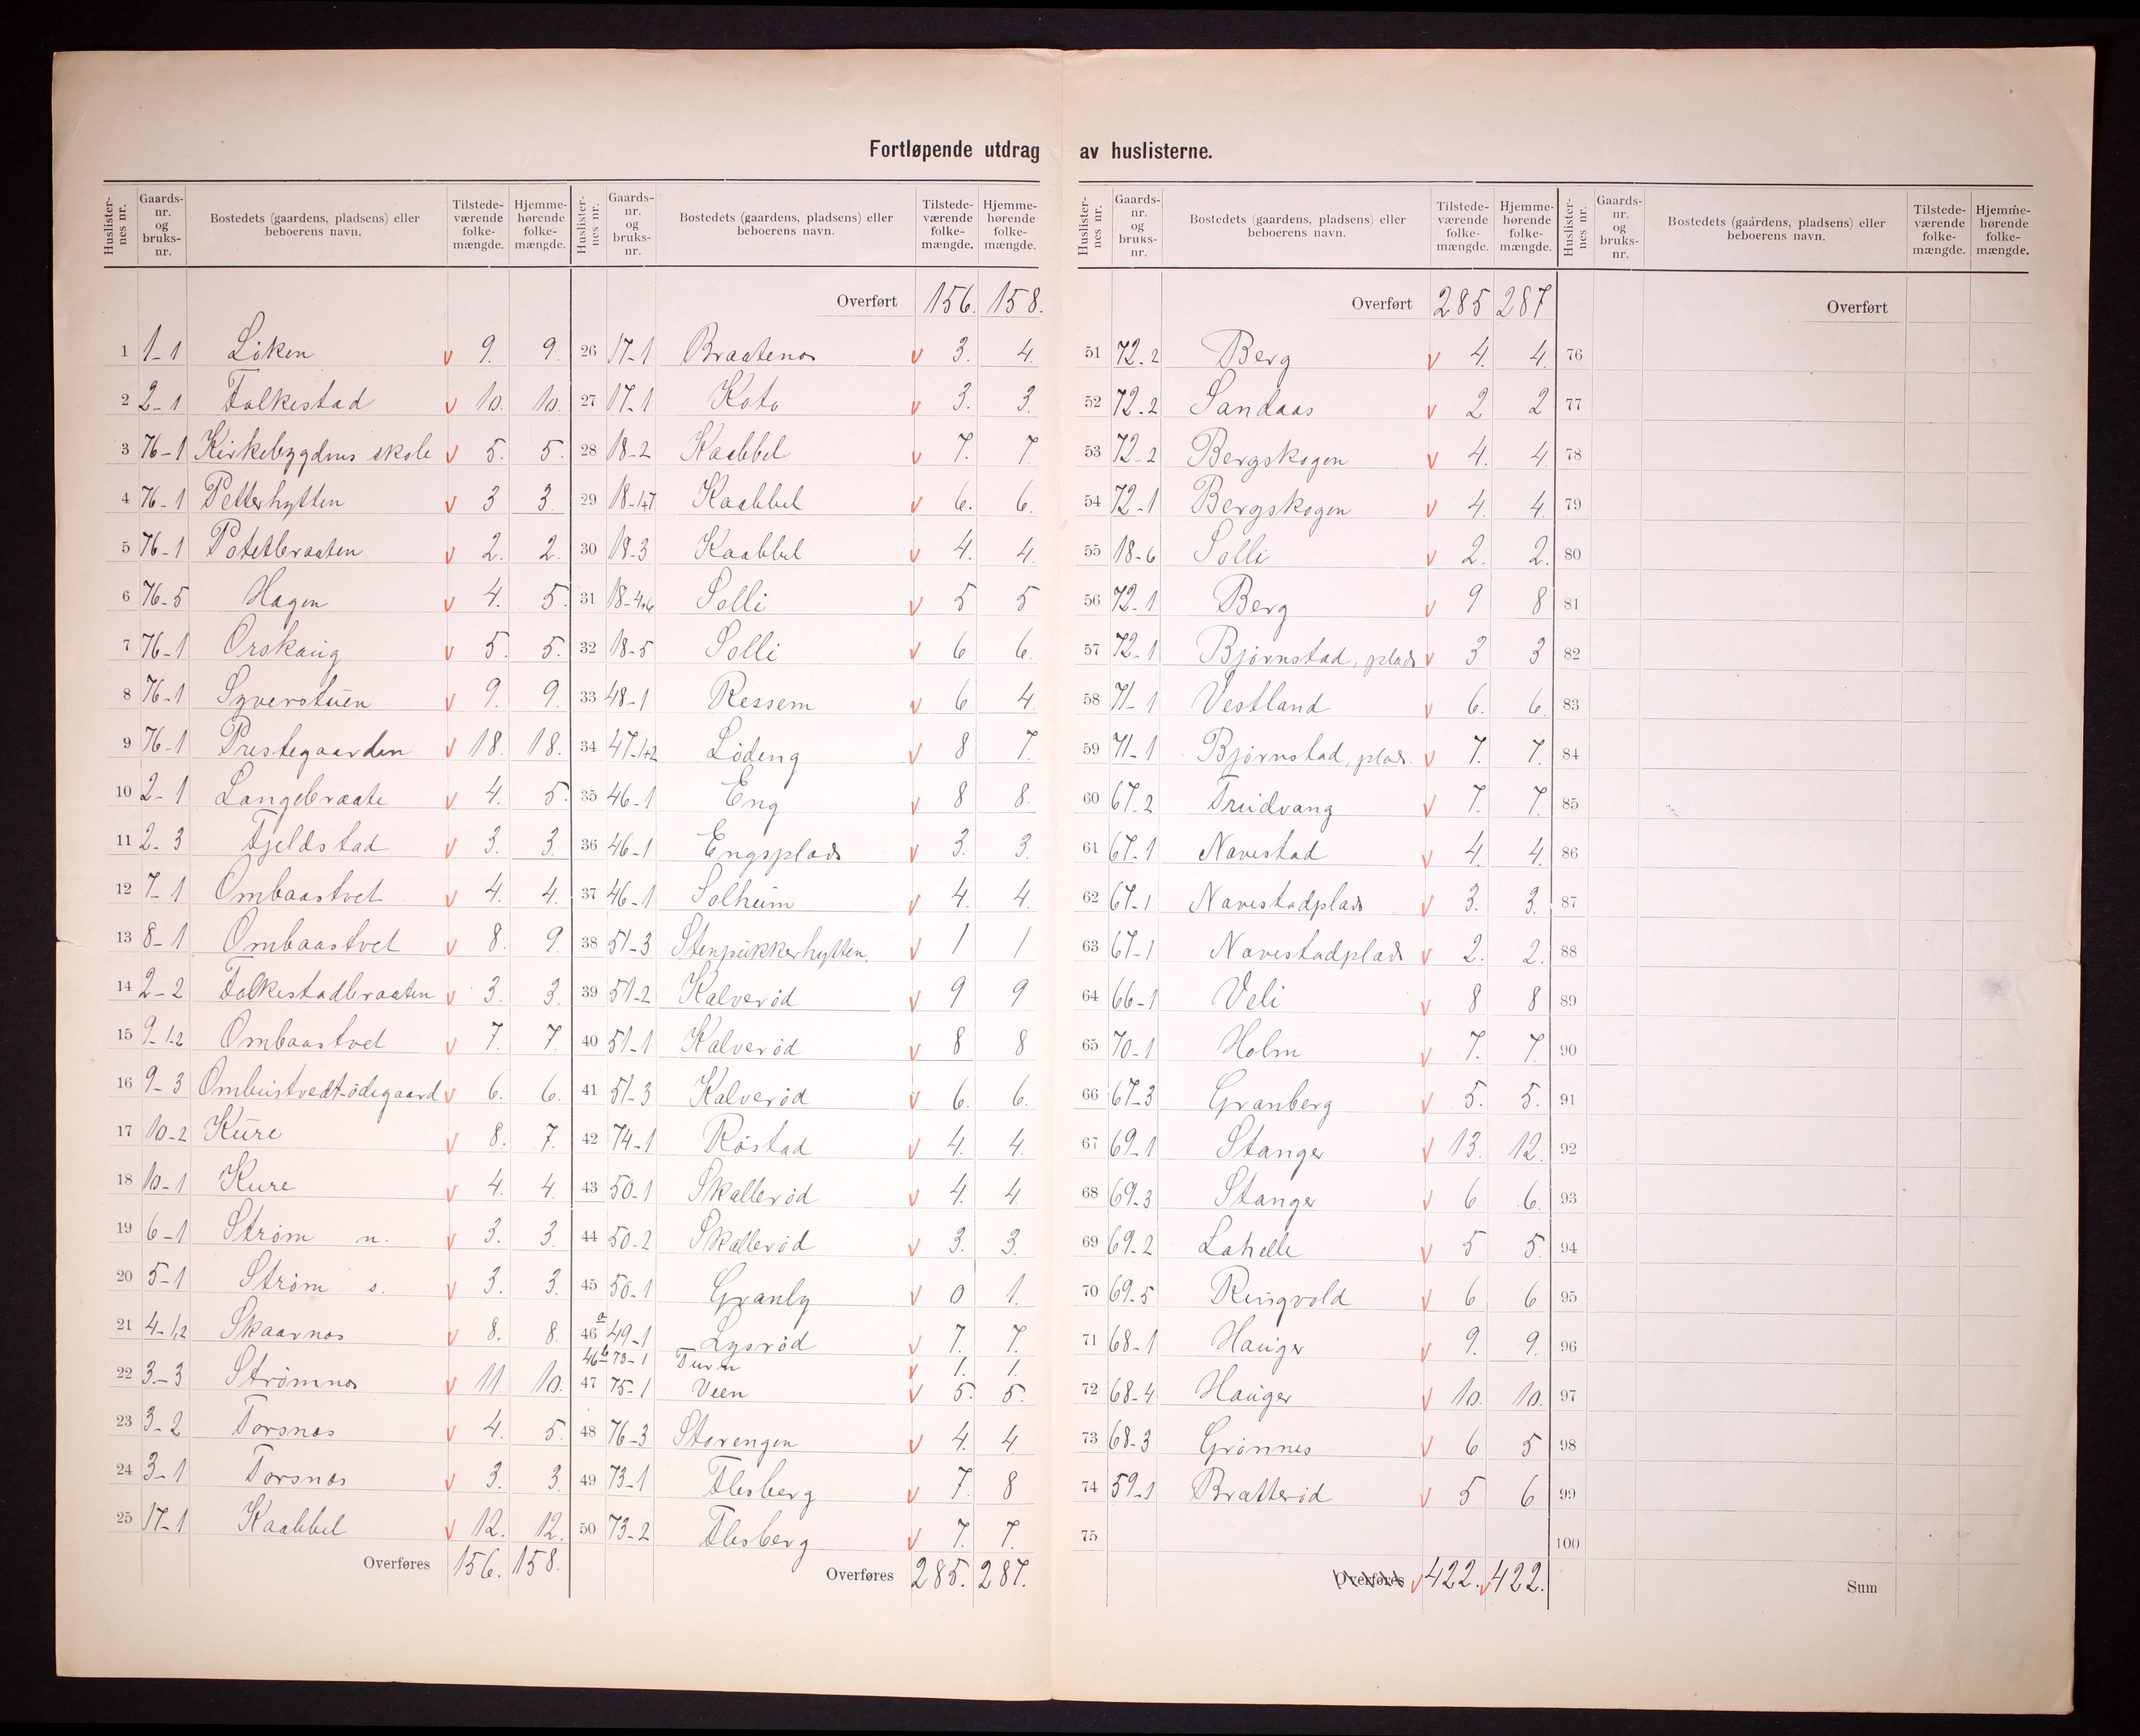 Fortløpende utdrag av huslisterne.
Huslisternes nr. Gaards-nr. og bruks-nr. Bostedets (gaardens, pladsens) eller beboerens navn. Tilstedeværende folkemængde. Hjemmehørende folkemængde.
1 1-1 Liken v 9. 9.
2 2-1 Folkestad v 10. 10.
3 76-1 Kirkebygdens skole v 5. 5.
4 76-1 Petterhytten v 3 3
5 76-1 Potetbraaten v 2. 2.
6 76-5 Hagen v 4. 5.
7 76-1 Orskaug v 5. 5.
8 76-1 Syverstuen v 9. 9.
9 76-1 Prestegaarden v 18. 18.
10 2-1 Langebraate v 4. 5.
11 2-3 Fjeldstad v 3. 3.
12 7-1 Ombaastvet v 4. 4.
13 8-1 Ombaastvet v 8. 9.
14 2-2 Folkestadbraaten v 3. 3.
15 9-1.2 Ombaastvet v 7. 7.
16 9-3 Ombustvedt-ödegaard v 6. 6.
17 10-2 Kure v 8. 7.
18 10-1 Kure v 4. 4.
19 6-1 Ström n. v 3. 3.
20 5-1 Ström s. v 3. 3.
21 4-1,2 Skaarnes v 8. 8.
22 3-3 Strömnes v 11. 10.
23 3-2 Torsnes v 4. 5.
24 3-1 Torsnes v 3. 3.
25 17-1 Kaabbel v 12. 12.
Overføres 156. 158.
Huslisternes nr. Gaards-nr. og bruks-nr. Bostedets (gaardens, pladsens) eller beboerens navn. Tilstedeværende folkemængde. Hjemmehørende folkemængde.
Overført 156. 158.
26 17-1 Braatenes v 3. 4.
27 17-1 Koto v 3. 3.
28 18-2 Kaabbel v 7. 7
29 18-1+7 Kaabbel v 6. 6.
30 18-3 Kaabbel v 4. 4.
31 18-4+6 Solli v 5 5
32 18-5 Solli v 6 6.
33 48-1 Ressem v 6 4.
34 47-1+2 Lödeng v 8 7.
35 46-1 Eng v 8 8.
36 46-1 Engsplads v 3. 3.
37 46-1 Solheim v 4. 4.
38 51-3 Stenpukkerhytten. v 1 1
39 51-2 Kalveröd v 9 9
40 51-1 Kalveröd v 8 8
41 51-3 Kalveröd v 6. 6.
42 74-1 Röstad v 4. 4.
43 50-1 Skalleröd v 4. 4.
44 50-2 Skalleröd v 3. 3.
45 50-1 Granly v 0 1.
46a 49-1 Lysröd v 7. 7.
46b 73-1 v 1. 1.
47 75-1 Veen v 5. 5.
48 76-3 Storengen v 4. 4
49 73-1 Flesberg v 7. 8
50 73-2 Flesberg v 7. 7.
Overføres 285. 287.
Huslisternes nr. Gaards-nr. og bruks-nr. Bostedets (gaardens, pladsens) eller beboerens navn. Tilstedeværende folkemængde. Hjemmehørende folkemængde.
Overført 285 287
51 72-2 Berg v 4. 4.
52 72-2 Sandaas v 2 2
53 72-2 Bergskogen v 4. 4.
54 72-1 Bergskogen v 4. 4.
55 18-6 Solli v 2. 2.
56 72-1 Berg v 9 8
57 72-1 Björnstad, plads v 3 3
58 71-1 Vestland v 6. 6.
59 71-1 Björnstad, plads. v 7. 7.
60 67-2 Trudvang v 7. 7.
61 67-1 Navestad v 4. 4.
62 67-1 Navestadplads v 3. 3.
63 67-1 Navestadplads v 2. 2.
64 66-1 Veli v 8 8
65 70-1 Holm v 7. 7.
66 67-3 Granberg v 5. 5.
67 69-1 Stanger v 13. 12.
68 69-3 Stanger v 6 6.
69 69-2 Lahelle v 5 5.
70 69-5 Ringvold v 6 6
71 68-1 Hauger v 9. 9.
72 68-4 Hauger v 10. 10.
73 68-3 Grönnes v 6 5
74 59-1 Bratteröd v 5 6
75
Overføres v 422. v 422.
Huslisternes nr. Gaards-nr. og bruks-nr. Bostedets (gaardens, pladsens) eller beboerens navn. Tilstedeværende folkemængde. Hjemmehørende folkemængde.
Overført
76
77
78
79
80
81
82
83
84
85
86
87
88
89
90
91
92
93
94
95
96
97
98
99
100
Sum